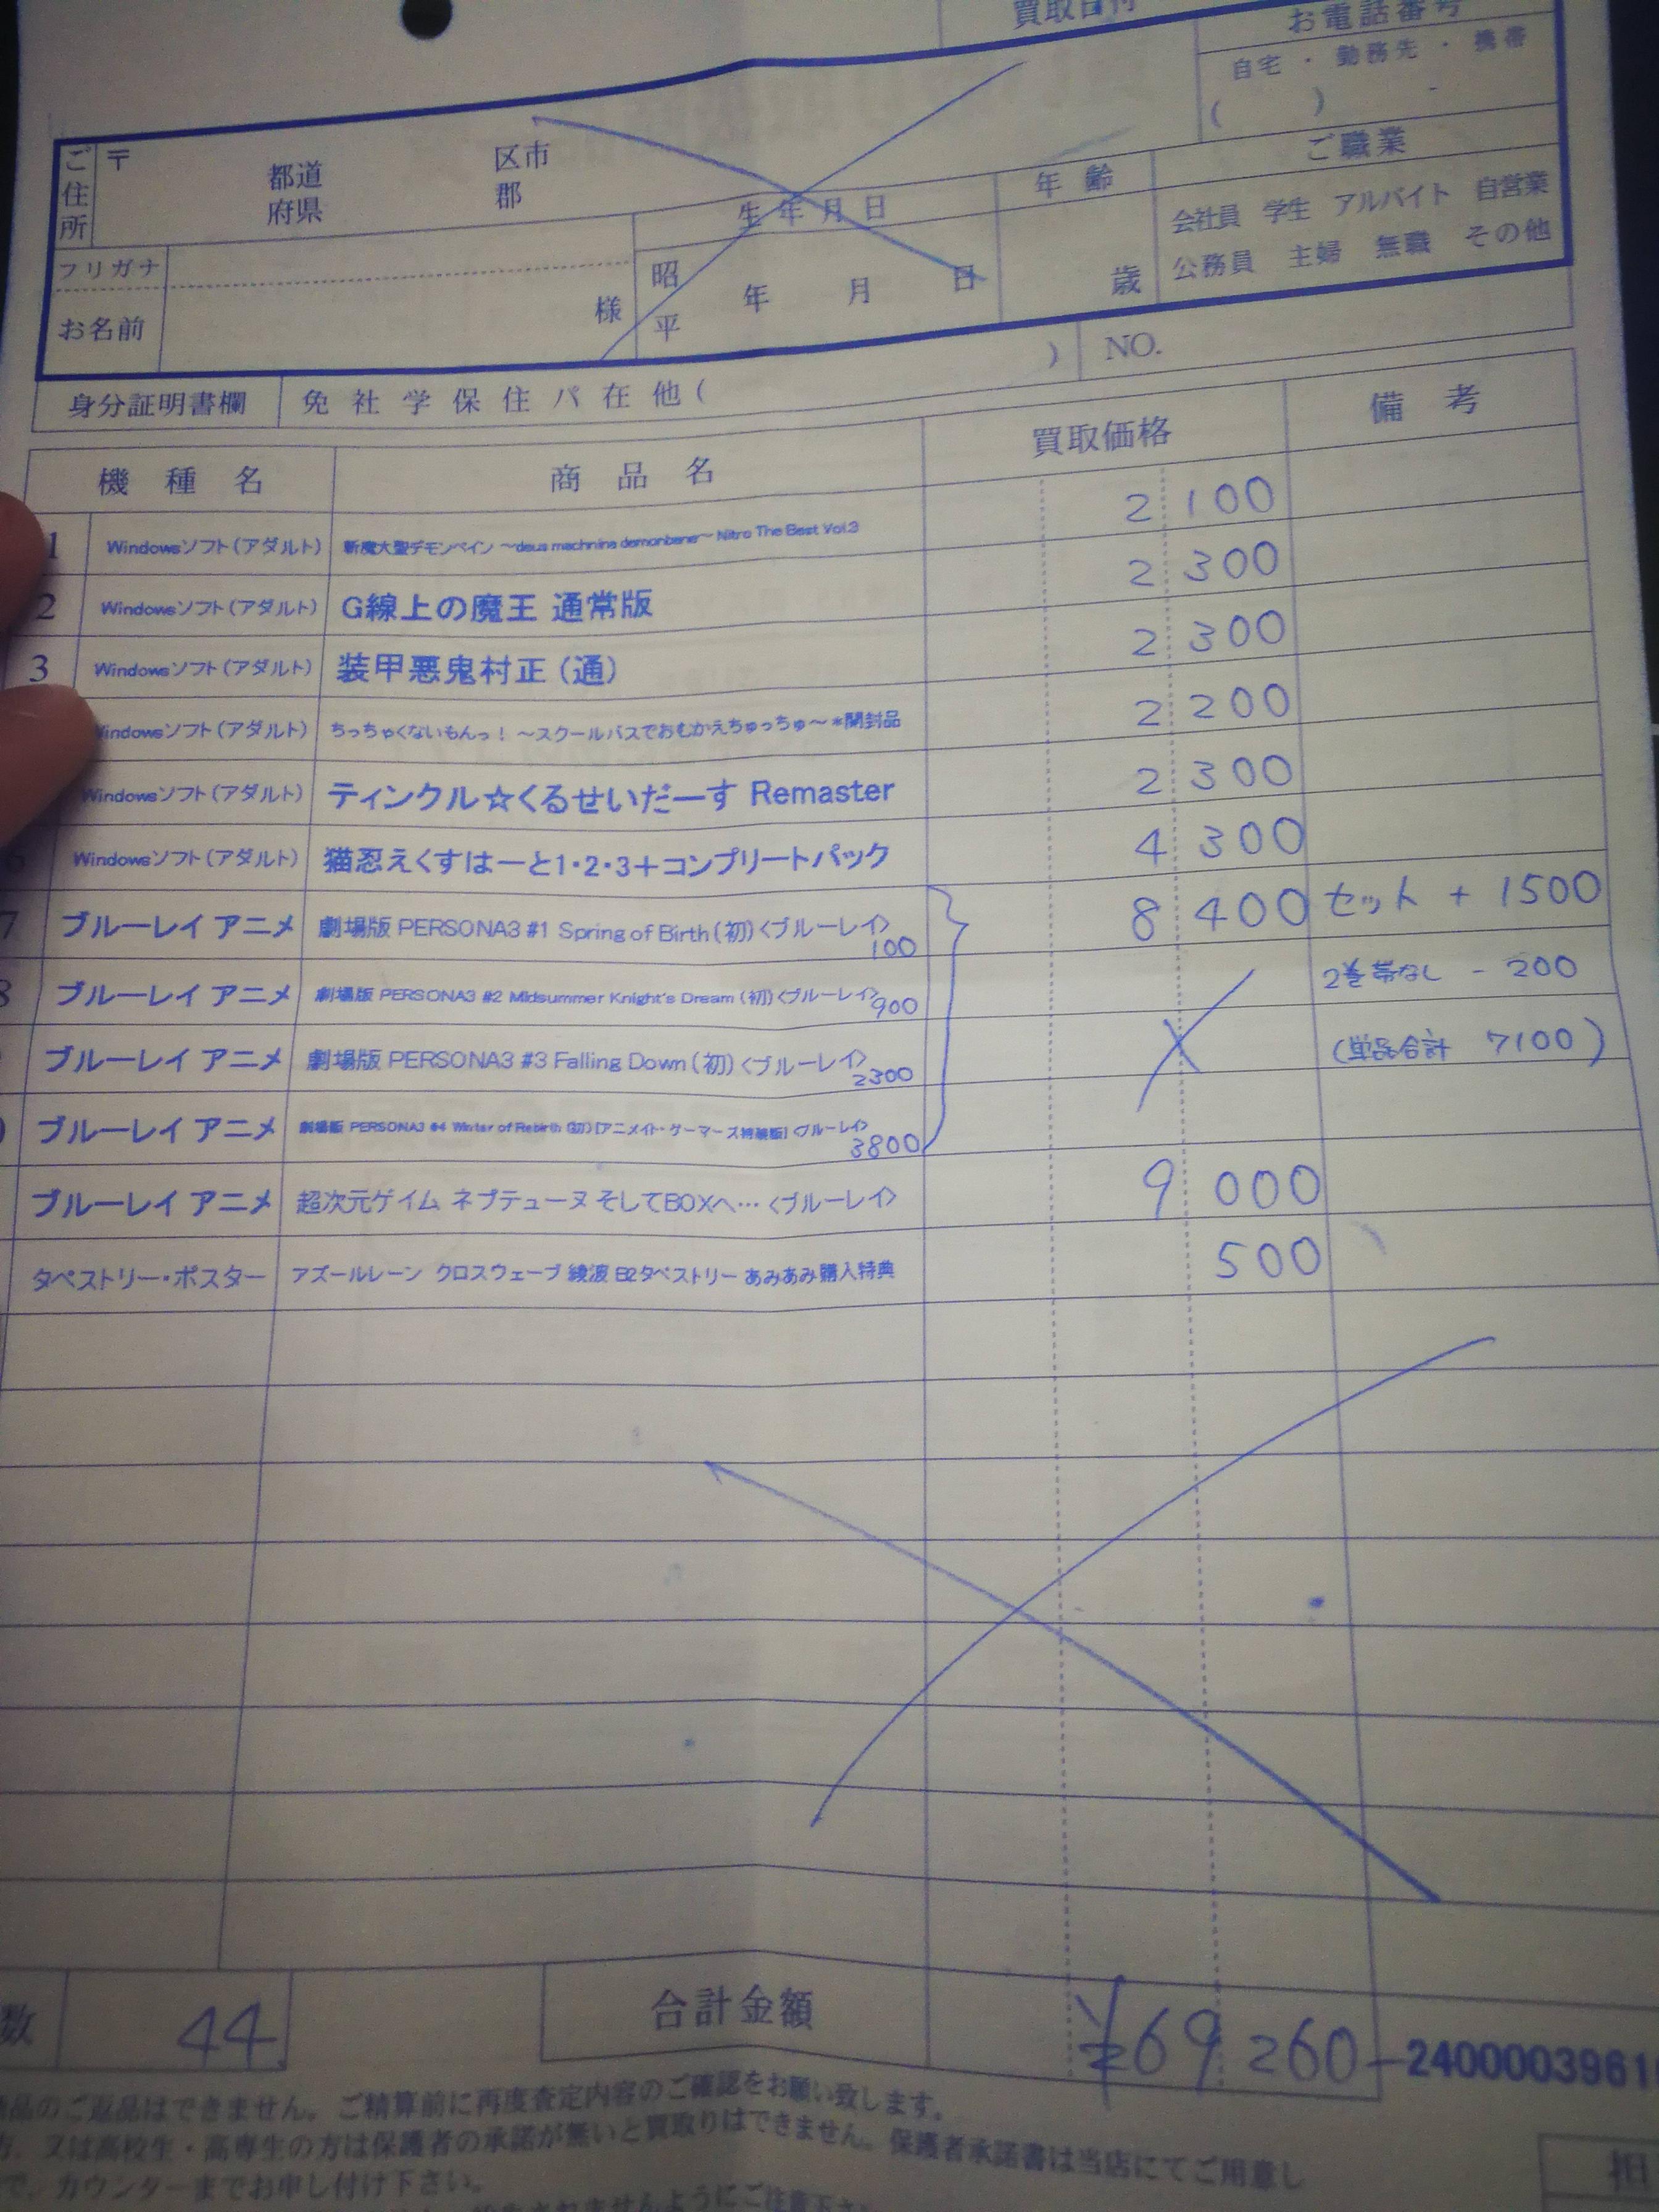 買取日付
お電話番号
自宅 ・ 勤務先 ・ 携帯
(　　) -
ご住所
〒
都道
府県
区市
郡
生年月日
年齢
ご職業
会社員 学生 アルバイト 自営業
公務員 主婦 無職 その他
フリガナ
お名前
様
昭
平
年 月 日
歳
身分証明書欄 免 社 学 保 住 パ 在 他 ( ) NO.
機種名 商品名 買取価格 備考
1 Windowsソフト(アダルト) 斬魔大聖デモンベイン ～deus machnina demonbane～ Nitro The Best Vol.3 2 100
2 Windowsソフト(アダルト) G線上の魔王 通常版 2 300
3 Windowsソフト(アダルト) 装甲悪鬼村正(通) 2 300
Windowsソフト(アダルト) ちっちゃくないもんっ! ～スクールバスでおむかえちゅっちゅ～*開封品 2 200
Windowsソフト(アダルト) ティンクル☆くるせいだーす Remaster 2 300
6 Windowsソフト(アダルト) 猫忍えくすはーと1・2・3+コンプリートパック 4 300
7 ブルーレイ アニメ 劇場版 PERSONA3 #1 Spring of Birth(初)<ブルーレイ> 100 8 400 セット + 1500
8 ブルーレイ アニメ 劇場版 PERSONA3 #2 Midsummer Knight's Dream(初)<ブルーレイ> 900 2巻帯なし - 200
ブルーレイ アニメ 劇場版 PERSONA3 #3 Falling Down(初)<ブルーレイ> 2300 (単品合計 7100)
ブルーレイ アニメ 劇場版 PERSONA3 #4 Winter of Rebirth(初)[アニメイト・ゲーマーズ特装版]<ブルーレイ> 3800
ブルーレイ アニメ 超次元ゲイム ネプテューヌ そしてBOXへ…<ブルーレイ> 9 000
タペストリー・ポスター アズールレーン クロスウェーブ 綾波 B2タペストリー あみあみ購入特典 500
数 44 合計金額 ¥69 260- 240000396
品のご返品はできません。ご精算前に再度査定内容のご確認をお願い致します。
又は高校生・高専生の方は保護者の承諾が無いと買取りはできません。保護者承諾書は当店にてご用意し
で、カウンターまでお申し付け下さい。
担
ませんようにご注意下さい